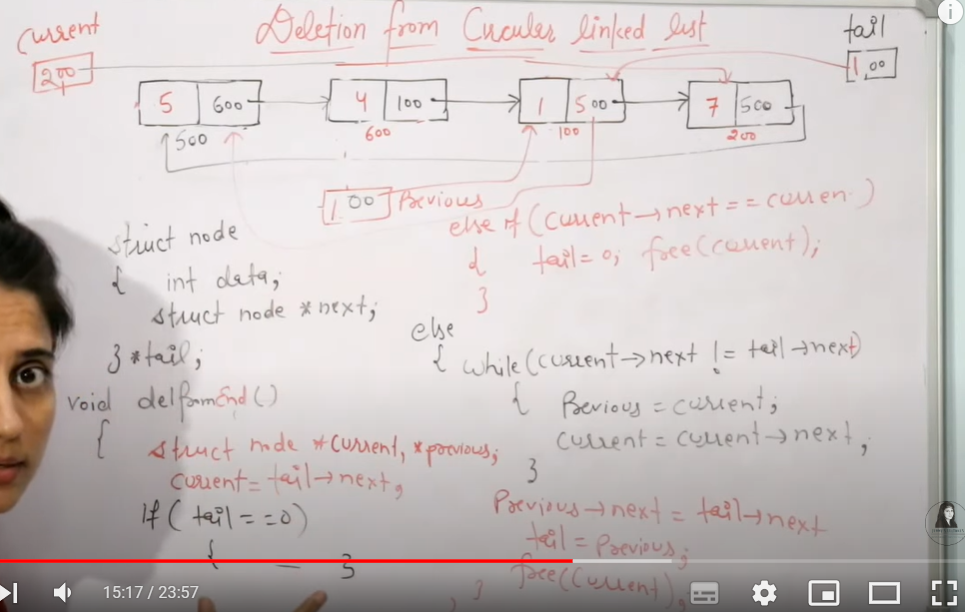 Deletion from Circuler linked list
current
200
tail
100
5 600
4 100
1 500
7 500
500
600
100
200
100 Previous
struct node
{ int data;
struct node *next;
} *tail;
void delfromEnd()
{ struct node *current, *previous;
current = tail→next;
If (tail==0)
{ — }
else if (current→next == curren )
{ tail=0; free(current);
}
else
{ while (current→next != tail→next)
{ Previous = current;
current = current→next;
}
Previous→next = tail→next
tail = Previous;
free(current);
}
15:17 / 23:57